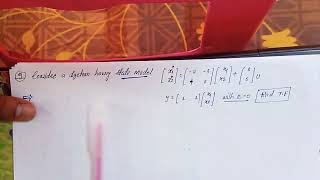 ⑨ Consider a System having State Model [ẋ₁ ẋ₂] = [-2 -3 4 2] [x₁ x₂] + [3 5] U
y = [1 1] [x₁ x₂] with D=0 Find T.F
Sol: